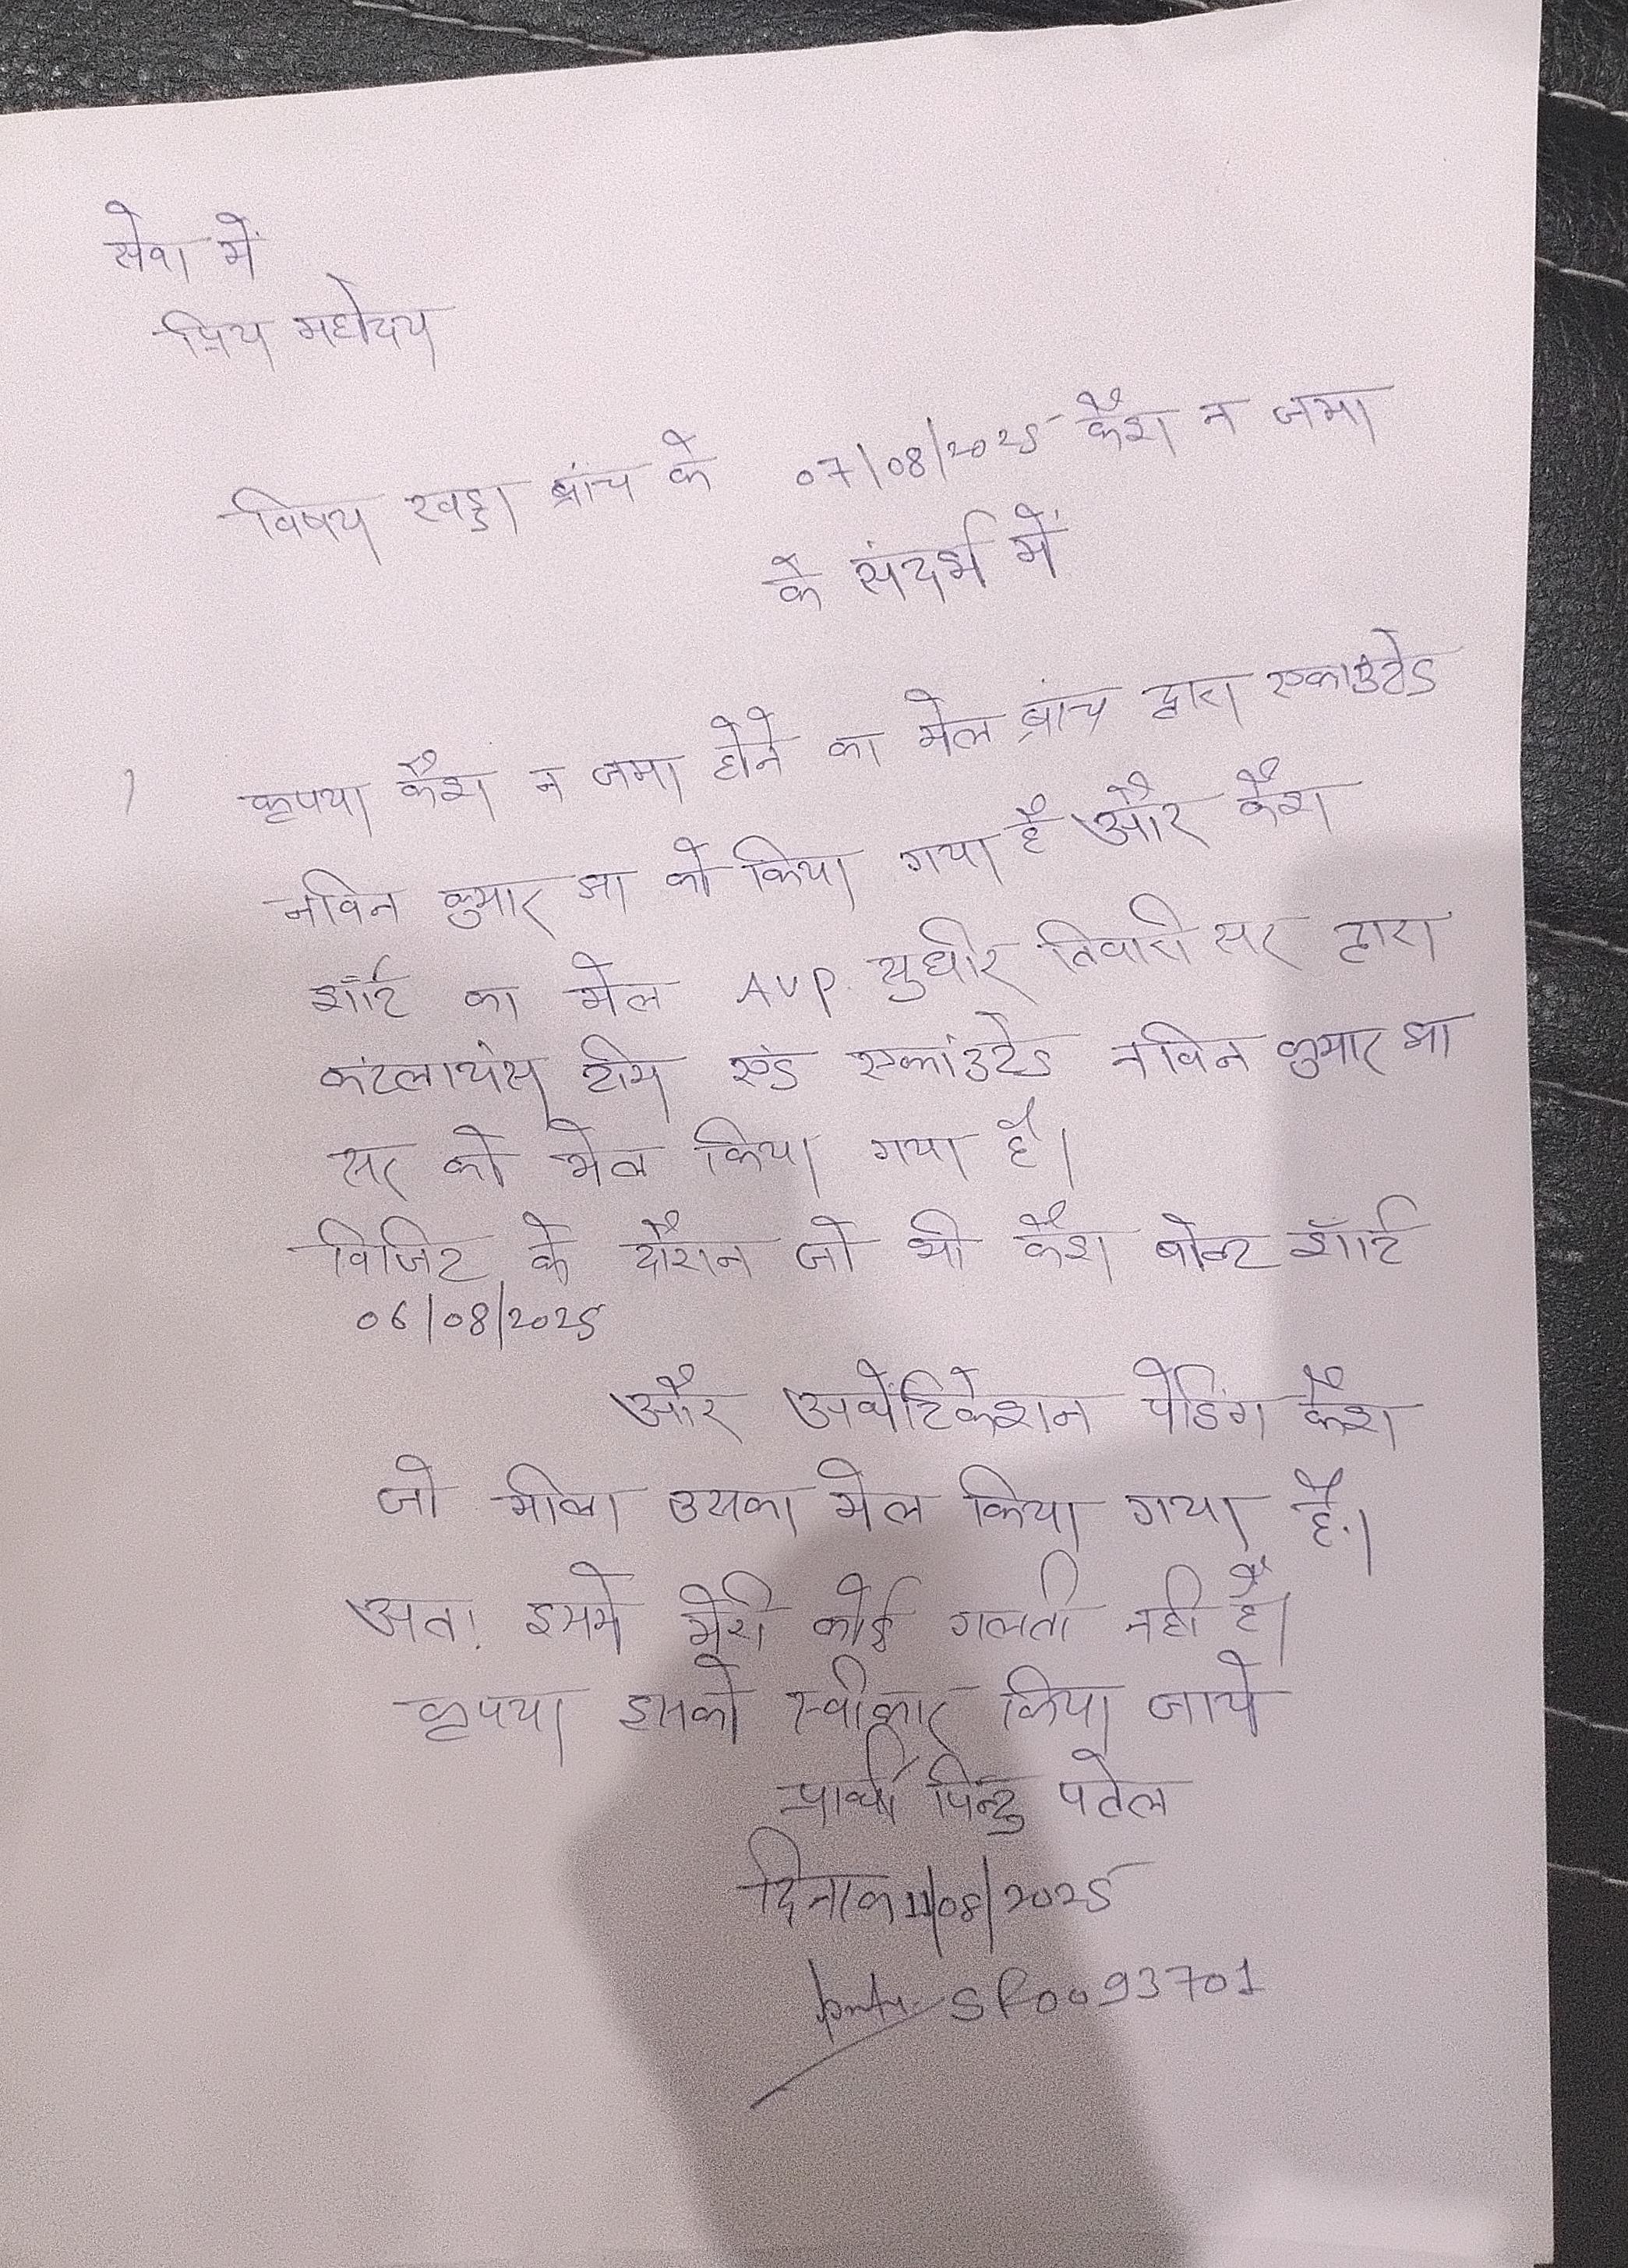 सेवा में
प्रिय महोदय
विषय खड्डा ब्रांच के 07/08/2025 कैश न जमा
के संदर्भ में
कृपया कैश न जमा होने का मेल ब्रांच द्वारा एकाउंटेड
नविन कुमार झा को किया गया है और कैश
शॉर्ट का मेल AVP. सुधीर तिवारी सर द्वारा
कंप्लायंस टीम एंड एकांउटेड नविन कुमार झा
सर को मेल किया गया है।
विजिट के दौरान जो भी कैश शॉर्ट
06/08/2025
और अथेंटिकेशन पेंडिंग कैश
जो मीला उसका मेल किया गया है.।
अत! इसमे मेरी कोई गलती नही है।
कृपया इसको स्वीकार किया जाये
प्रार्थी पिन्टु पटेल
दिनाक 11/08/2025
SF0093701